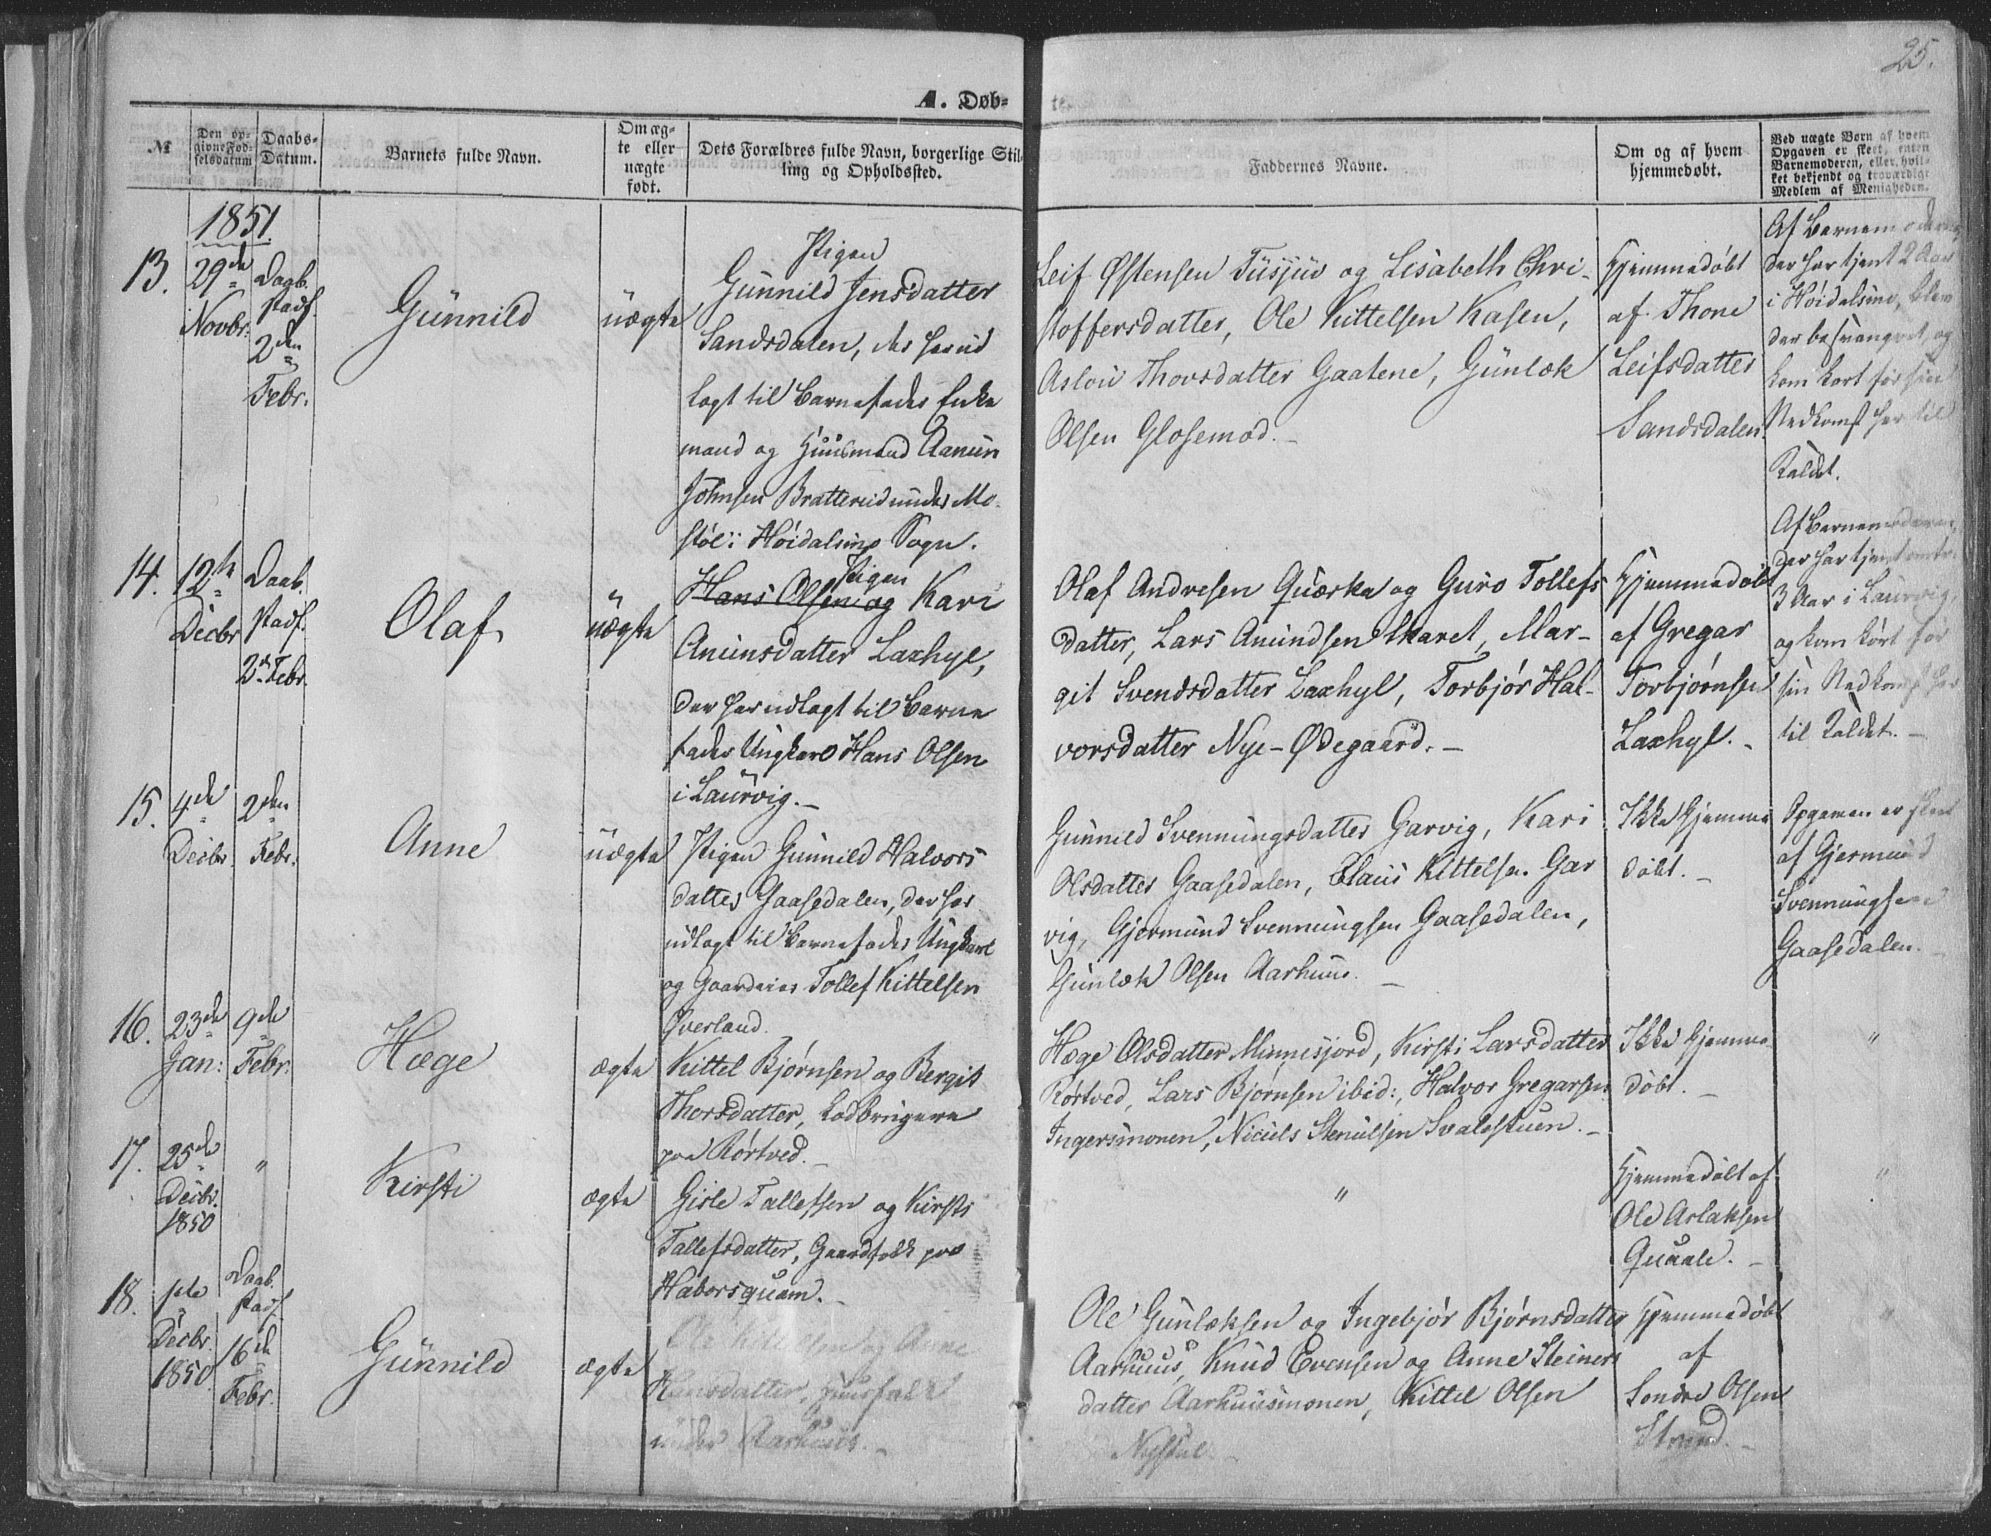 25.
A. Døb-
te
№
Den op-
givne Fød-
selsdatum
Daabs-
Datum.
Barnets fulde Navn.
Om æg-
te eller
uægte
født.
Dets Forældres fulde Navn, borgerlige Stil-
ling og Opholdssted.
Faddernes Navne.
Om og af hvem
hjemmedøbt.
Ved uægte Born af hvem
Opgaven er skeet, enten
Barnemoderen, eller hvil-
ket bekjendt og troværdigt
Medlem af Menigheden.
1851.
13.
29de
Novbr.
Daab.
stadf.
2den
Febr.
Gunnild
uægte
Pigen
Gunnild Jensdatter
Sandsdalen, der har ud
lagt til Barnefader Enke
mand og Huusmand Aanun
Johnsen Brattereid under Mo-
støl i Høidalsmo Sogn.
Leif Østensen Tusjuv og Lisabeth Chri-
stoffersdatter, Ole Kittelsen Kasen,
Aslou Thovsdatter Gaatene, Gunlæk
Olsen Glosemod.-
Hjemmedøbt
af Thone
Leifsdatter
Sandsdalen
Af Barnemoderen,
der har tjent 2 Aar
i Høidalsmo, blev
der besvangret, og
kom kort før sin
Nedkomst her til
Kaldet.
14.
12te
Decbr
Daab.
stadf.
2d Febr.
Olaf
uægte
Pigen
Hans Olsen og Kari
Anunsdatter Laxhyl,
der har udlagt til Barne
fader Ungkarl Hans Olsen
i Laurvig.-
Olaf Andresen Quærka og Guro Tollefs
datter, Lars Amundsen Skaret, Mar-
git Svendsdatter Laxhyl, Torbjør Hal-
vorsdatter Nye-Ødegaard.-
Hjemmedøbt
af Gregar
Torbjørnsen
Laxhyl.-
Af Barnemoderen,
der har tjent omtr.
3 Aar i Laurvig,
og kom kort før
sin Nedkomst her
til Kaldet.-
15.
4de
Decbr.
2den
Febr.
Anne
uægte
Pigen Gunnild Halvors
datter Gaasedalen, der har
udlagt til Barnefader Ungkarl
og Gaardeier Tollef Kittelsen
Øverland.
Gunnild Svenningsdatter Garvig, Kari
Olsdatter Gaasedalen, Claus Kittelsen Gar
vig, Gjermund Svennungsen Gaasedalen,
Gunlæk Olsen Aarhuus.-
Ikke Hjemme
døbt.-
Opgaven er skeet
af Gjermund
Svennungsen
Gaasedalen.-
16.
23de
Jan:
9de
Febr.
Hæge
ægte
Kittel Bjørnsen og Bergit
Thorsdatter, Ladbrugere
paa Rørtved.-
Hæge Olsdatter Minnesjord, Kirsti Larsdatter
Rørtved, Lars Bjørnsen ibid:, Halvor Gregarsen
Ingersmonen, Niculs Stenulsen Svalestuen.-
Ikke Hjemme-
døbt.-
"
17.
25de
Decbr.
1850
"
Kirsti
ægte
Gisle Tallefsen og Kirsti
Tallefsdatter, Gaardfolk paa
Haborsquam.-
"
Hjemmedøbt af
Ole Aslaksen
Quaale.-
"
18.
1ste
Decbr.
1850.
Daab.
stadf.
16de
Febr.
Gunnild
ægte
Ole Kittelsen og Anne
Hansdatter, Huusfolk
under Aarhuus.-
Ole Gunlæksen og Ingebjør Bjørnsdatter
Aarhuus, Knud Evensen og Anne Steiners
datter Aarhuusmonen, Kittel Olsen
Hjemmedøbt
af
Sondre Olsen
Strand.-
"